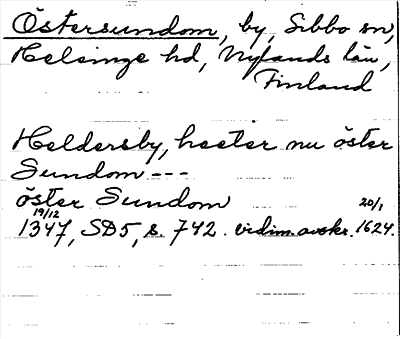 Östersundom, by, Sibbo sn,
Helsinge hd, Nylands län,
Finland
Heldersby, heeter nu öster
Sundom ---
öster Sundom
19/12 1347, SD5, s. 742. vidim. avskr. 20/1 1624.